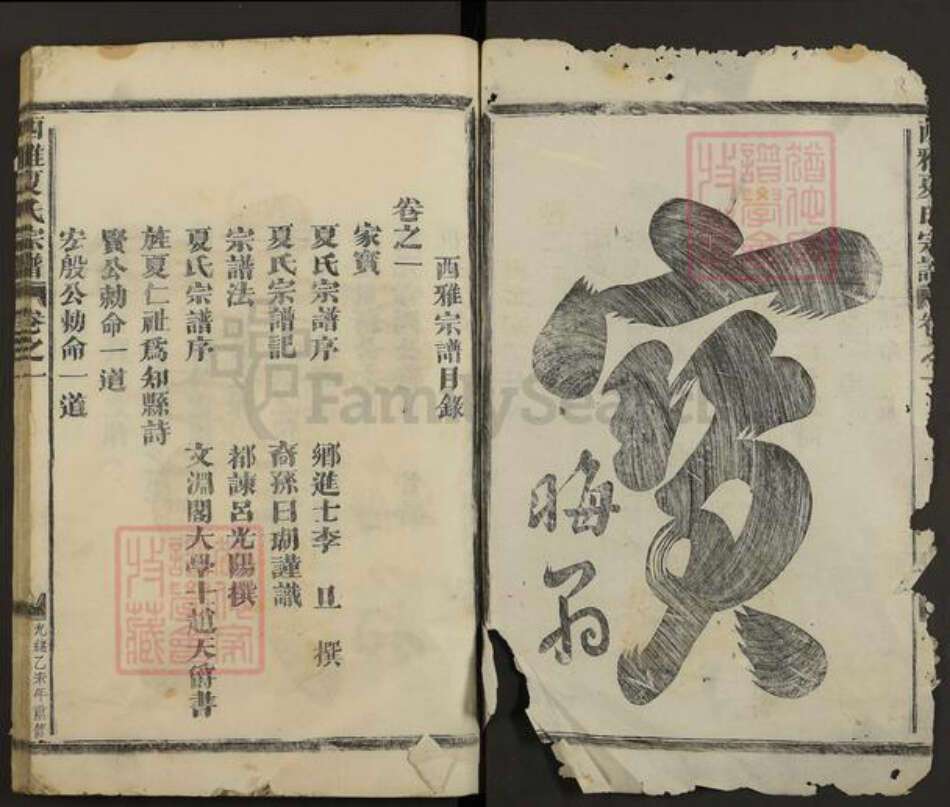 寶
晦翁
西雅宗譜目錄
卷之一
家寶
夏氏宗譜序 鄉進士李 旦 撰
夏氏宗譜記 裔孫日瑚謹識
宗譜法 都諫呂光陽撰
夏氏宗譜序 文淵閣大學士趙天爵書
旌夏仁祉爲知縣詩
賢公勅命一道
宏殷公勅命一道
西雅夏氏宗譜 卷之一
光緒乙未年重修
FamilySearch